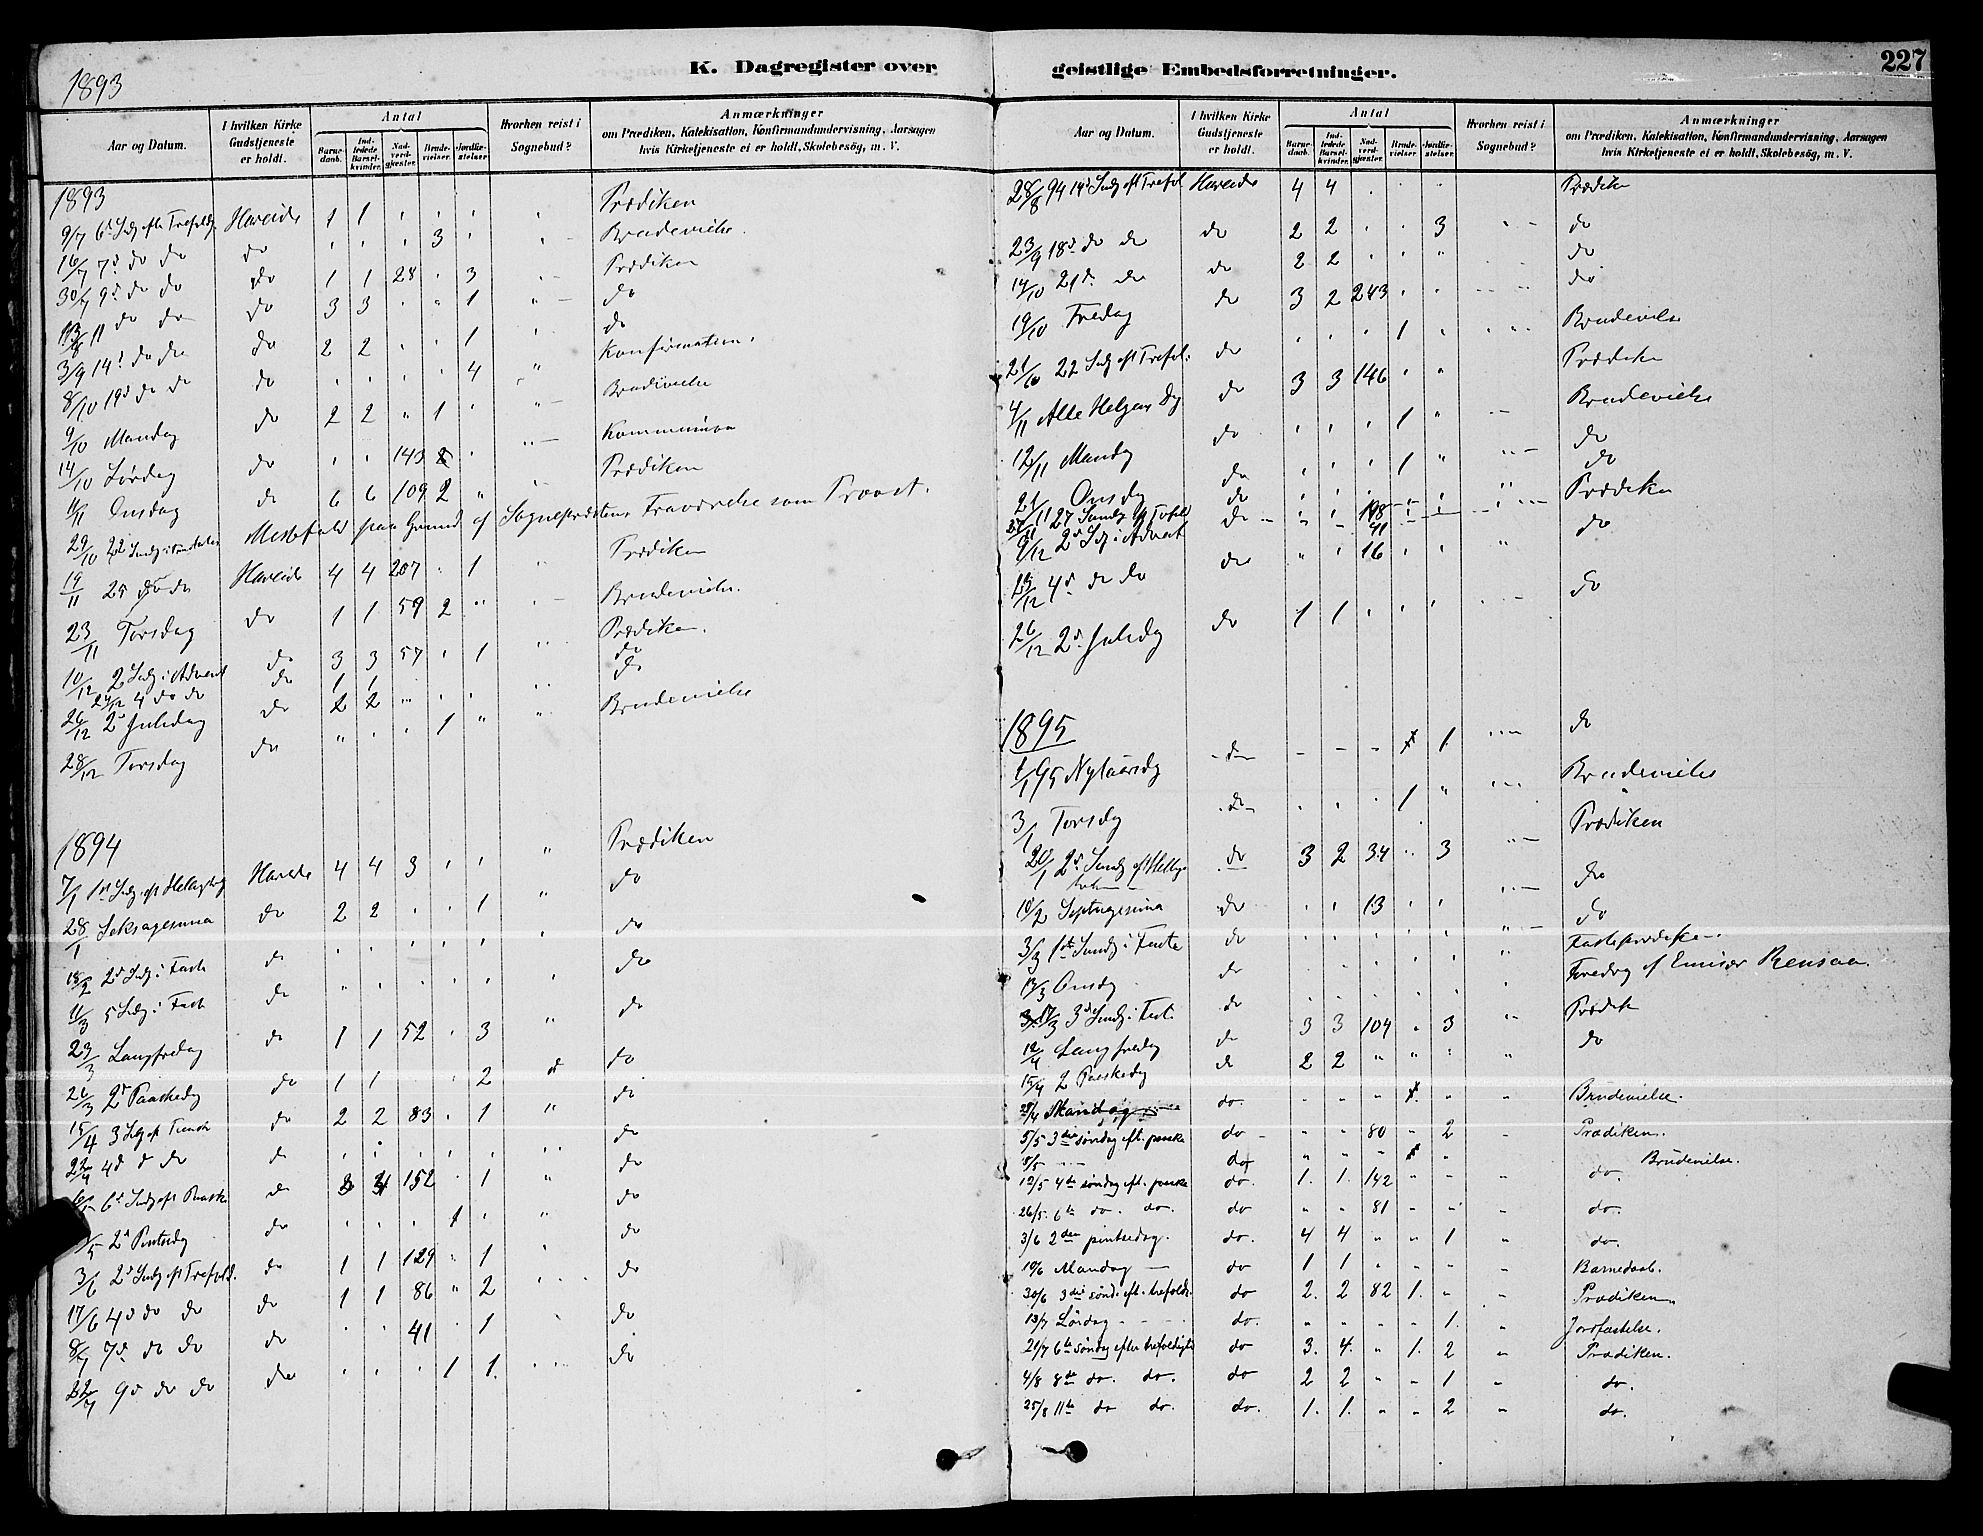 1893
K. Dagregister over geistlige Embedsforretninger. 227
Aar og Datum. | I hvilken Kirke Gudstjeneste er holdt. | Antal | Barnedaab. | Indledede Barselkvinder. | Nadverdgjæster. | Brudevielser. | Jordfæstelser. | Hvorhen reist i Sognebud? | Anmærkninger om Prædiken, Katekisation, Konfirmandundervisning, Aarsagen hvis Kirketjeneste ei er holdt, Skolebesög, m. V.
1893
9/7 6te Sdg efter Trefoldg Hareide 1 1 Prædiken
16/7 7d do do do 3 Brudevielse.
30/7 9d do do do 1 1 28 3 Prædiken
13/8 11 do do do 3 3 1 do
3/9 14d do do do 2 2 1 do
8/10 19d do do do 4 Konfirmation.
9/10 Mandag do 2 2 1 Brudevielse
14/10 Lørdag do 143 Kommunion
Onsdag do 6 6 109 2 Prædiken
29/10 22 Messefald paa Grund af Sogneprestens Fraværelse som Provst.
19/11 25 do do Hareide 4 4 207 1 Prædiken
23/11 Torsdag do 1 1 59 2 Brudevielse.
10/12 2 Sdg i Advent do 3 3 57 1 Prædiken.
24/12 4 do do do 1 1 do
26/12 2d Juledag do 2 2 do
28/12 Torsdag do 1 Brudevielse
1894
7/1 1st Sdg eft Helligtrekg Hareide 4 4 3 Prædiken
28/1 Seksagesima do 2 2 1 do
18/2 2d Sdg i Faste do do
11/3 5 Sdg i Faste do do
23/3 Langfredag do 1 1 52 3 do
26/3 2d Paaskedg do 1 1 2 do
15/4 3 Sdg eft Paaske do 2 2 83 1 do
22/4 4d do do do do
6d Sdg eft Paaske do 3 152 1 do
2d Pintsedg do 1 do
3/6 2d Sdg eft Trefold. do 1 1 129 1 do
17/6 4d do do do 1 1 86 2 do
8/7 7d do do do 41 1 do
22/7 9d do do do 1 1 do
Aar og Datum. | I hvilken Kirke Gudstjeneste er holdt. | Antal | Barnedaab. | Indledede Barselkvinder. | Nadverdgjæster. | Brudevielser. | Jordfæstelser. | Hvorhen reist i Sognebud? | Anmærkninger om Prædiken, Katekisation, Konfirmandundervisning, Aarsagen hvis Kirketjeneste ei er holdt, Skolebesög, m. V.
26/8 94 14d Sndg eft Trefol Hareide 4 4 Prædike
23/9 18d do do do 2 2 3 do
14/10 21d do do 2 2 do
19/10 Fredag do 3 2 243 do
21/10 22 Sdg eft Trefol. do 1 Brudevielse
4/11 Alle Helgens Dg do 3 3 146 Prædike
12/11 Mandg do 1 Brudevielse
21/11 Onsdg do 1 do
27 Sundg eft Trefold do do
9/12 2d Sdg i Advent do 41 Prædike
23/12 4d do do do 16 do
26/12 2d Juledg do 1 1 do
1895
1/1 95 Nytaarsdg do 1 do
3/1 Torsdg do 1 Brudevielse
20/1 2d Sundg eft Hellig 3 konger do 3 2 34 3 Prædiken
10/2 Septuagesima do 13 do
3/3 1ste Sundg i Faste do do
13/3 Onsdg do Fasteprædike
17/3 3die Sundg i Fast. do Foredrag af Emisær Rensaa.
12/4 Langfredag do 3 3 104 3 Prædik
15/4 2 Paaskedg do 2 2 do
29/4 Mandag do. 1. Brudevielse.
5/5 3die søndag eft. paaske do 80 2 Prædiken.
8/5 do Brudevielse.
12/5 4de søndag eft. paaske do. 1. 1. 142 do.
26/5. 6te do. do. do 81 do.
3/6 2den pintsedag. do. 4 4 1 do.
10/6 Mandag do 1 1 Barnedaab.
30/6 3die sønd. eft. trefoldh. do 2. 2 82 1. Prædiken.
13/7 Lördag do. 1. Jordfæstelse.
21/7 6te søndag efter trefoldighe do 3. 4. 1. 2 Prædiken.
4/8 8de do. do. do 2 2 1 do.
25/8 11te do do. do. 1. 1. 2 do.